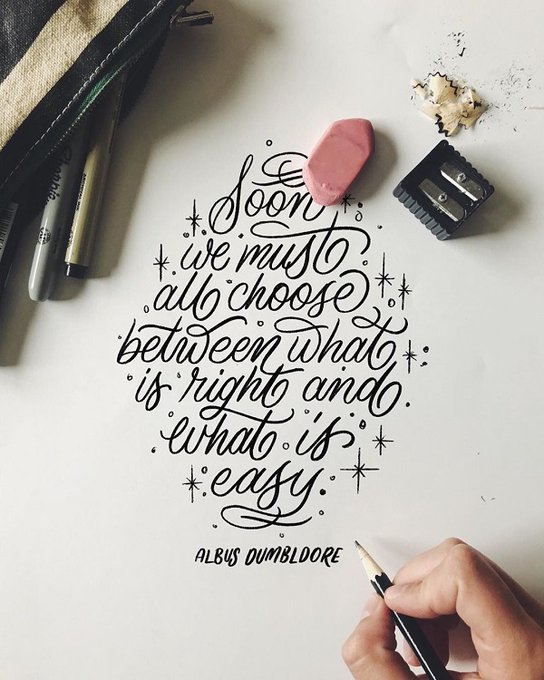 Soon
we must
all choose
between what
is right and
what is
easy.
ALBUS DUMBLDORE
Sharpie